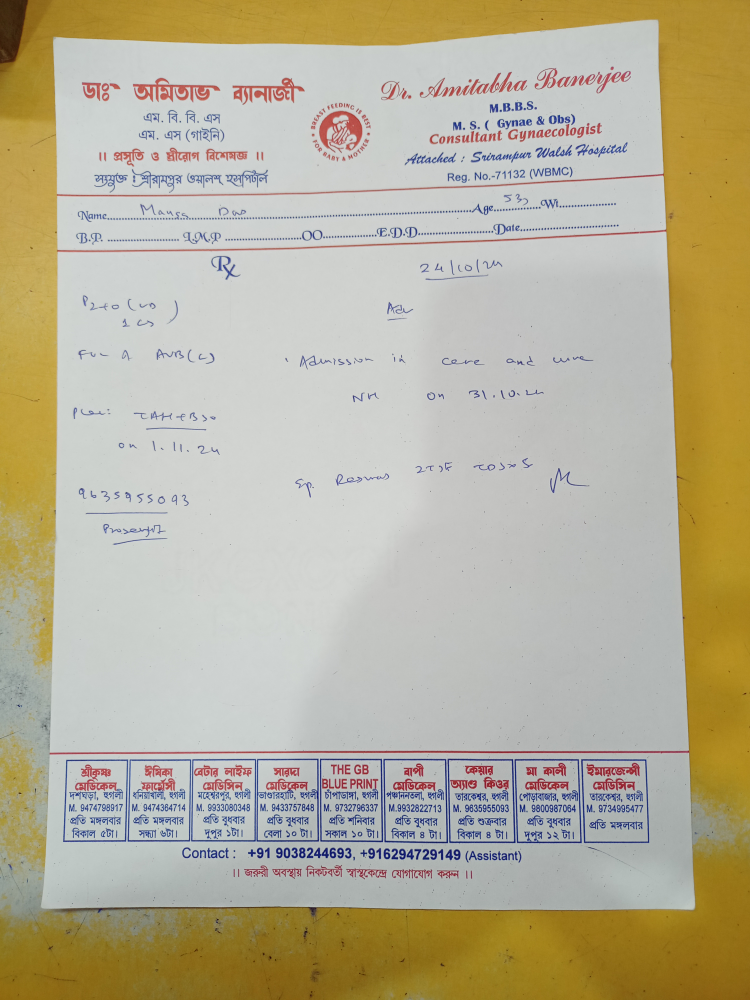 ডাঃ অমিতাভ ব্যানার্জী
এম. বি. বি. এস
এম. এস (গাইনি)
।। প্রসূতি ও স্ত্রীরোগ বিশেষজ্ঞ ।।
সংযুক্ত : শ্রীরামপুর ওয়ালশ হসপিটাল
BREAST FEEDING IS BEST FOR BABY & MOTHER
Dr. Amitabha Banerjee
M.B.B.S.
M. S. ( Gynae & Obs)
Consultant Gynaecologist
Attached : Srirampur Walsh Hospital
Reg. No.-71132 (WBMC)
Name Age 53y Wt
B.P. L.M.P OO E.D.D Date
Rx
24/10/24
P2+0
Adv
Admission in care and cure
NH on 31.10.24
Plan: TAH+BSO
on 1.11.24
9635955093
Prosenjit
শ্রীকৃষ্ণ মেডিকেল
দশঘড়া, হুগলী
M. 9474798917
প্রতি মঙ্গলবার
বিকাল ৫টা।
ঈষিকা ফার্মেসী
ধনিয়াখালী, হুগলী
M. 9474364714
প্রতি মঙ্গলবার
সন্ধ্যা ৬টা।
বেটার লাইফ মেডিসিন
মহেশ্বরপুর, হুগলী
M. 9933080348
প্রতি বুধবার
দুপুর ১টা।
সারদা মেডিকেল
ভাণ্ডারহাটি, হুগলী
M. 9433757848
প্রতি বুধবার
বেলা ১০ টা।
THE GB BLUE PRINT
চাঁপাডাঙ্গা, হুগলী
M. 9732796337
প্রতি শনিবার
সকাল ১০ টা।
বাপী মেডিকেল
পঞ্চাননতলা, হুগলী
M.9932822713
প্রতি বুধবার
বিকাল ৪ টা।
কেয়ার অ্যাণ্ড কিওর
তারকেশ্বর, হুগলী
M. 9635955093
প্রতি শুক্রবার
বিকাল ৪ টা।
মা কালী মেডিকেল
পোড়াবাজার, হুগলী
M. 9800987064
প্রতি বুধবার
দুপুর ১২ টা।
ইমারজেন্সী মেডিসিন
তারকেশ্বর, হুগলী
M. 9734995477
প্রতি মঙ্গলবার
Contact : +91 9038244693, +916294729149 (Assistant)
।। জরুরী অবস্থায় নিকটবর্তী স্বাস্থ্যকেন্দ্রে যোগাযোগ করুন ।।